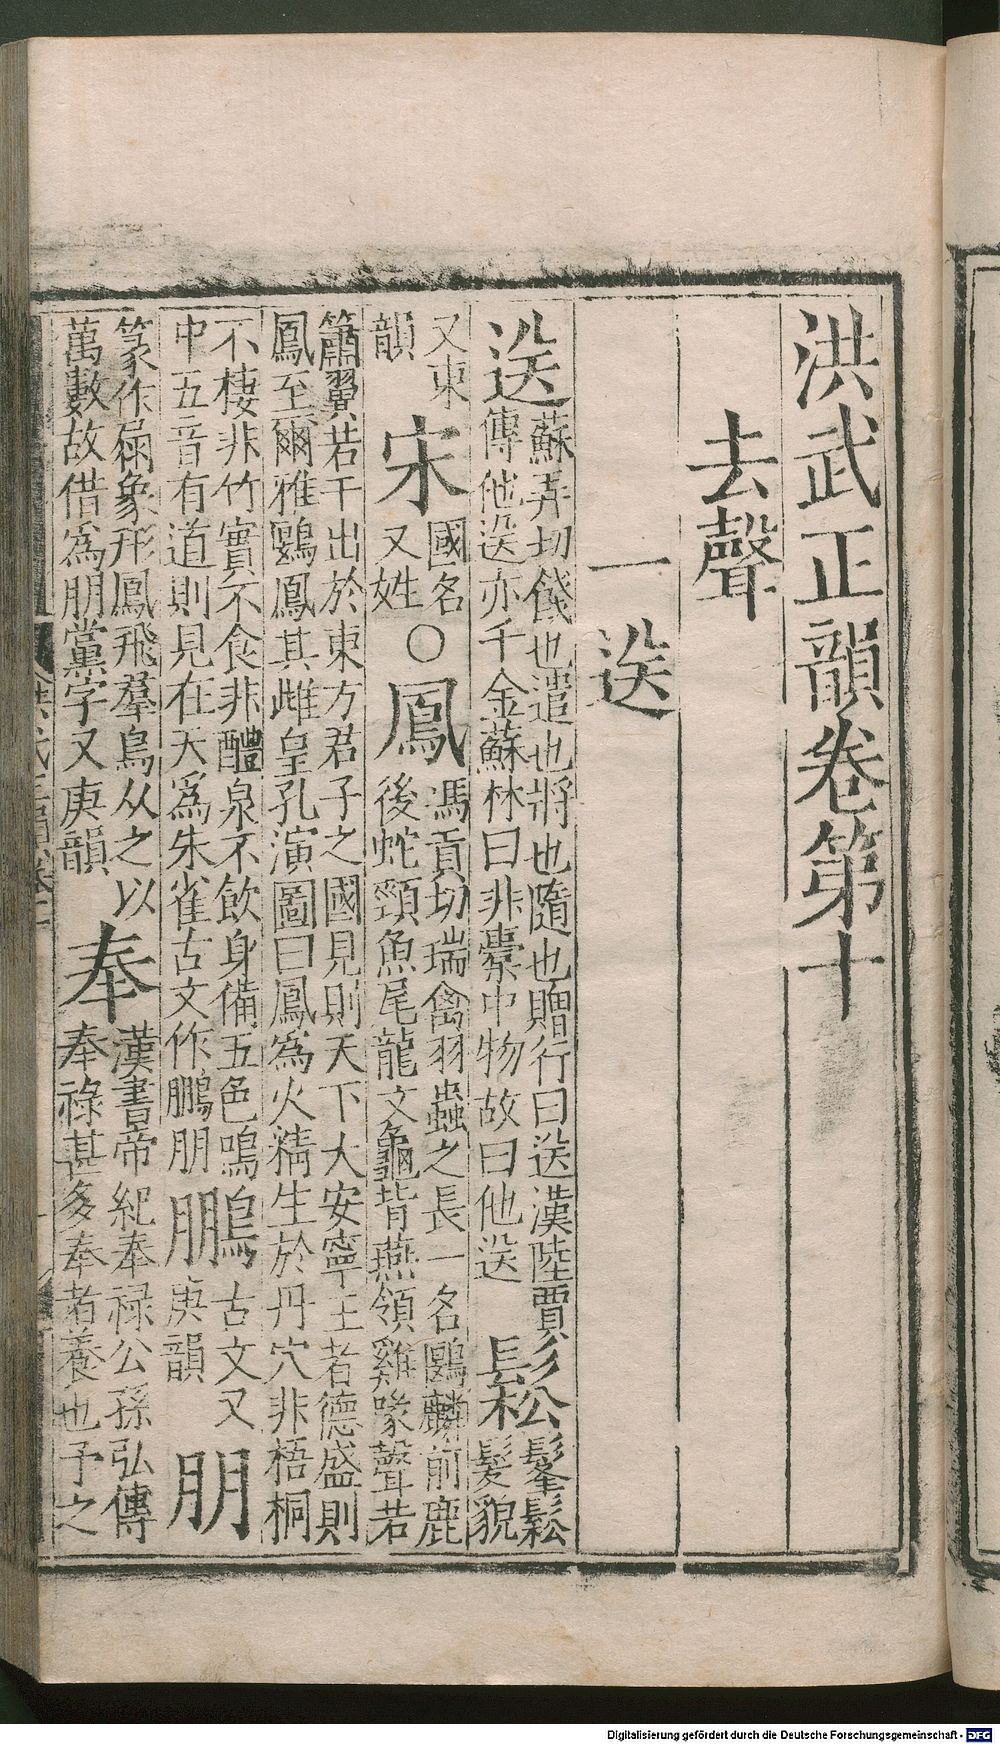 洪武正韻卷第十
去聲
一送
送蘇弄切餞也遣也將也隨也贈行曰送漢陸賈
傳他送亦千金蘇林曰非橐中物故曰他送
鬆鬔鬆
髮貌
又東
韻
宋國名
又姓
○鳳馮貢切瑞禽羽蟲之長一名鶠麟前鹿
後蛇頸魚尾龍文龜背燕頷雞喙聲若
簫翼若干出於東方君子之國見則天下大安寧王者德盛則
鳳至爾雅鶠鳳其雌皇孔演圖曰鳳爲火精生於丹穴非梧桐
不棲非竹實不食非醴泉不飲身備五色鳴
中五音有道則見在天爲朱雀古文作鵬朋
鵬古文又
庚韻
朋
篆作象形鳳飛羣鳥从之以
萬數故借爲朋黨字又庚韻
奉漢書帝紀奉祿公孫弘傳
奉祿甚多奉者養也予之
Digitalisierung gefördert durch die Deutsche Forschungsgemeinschaft - DFG